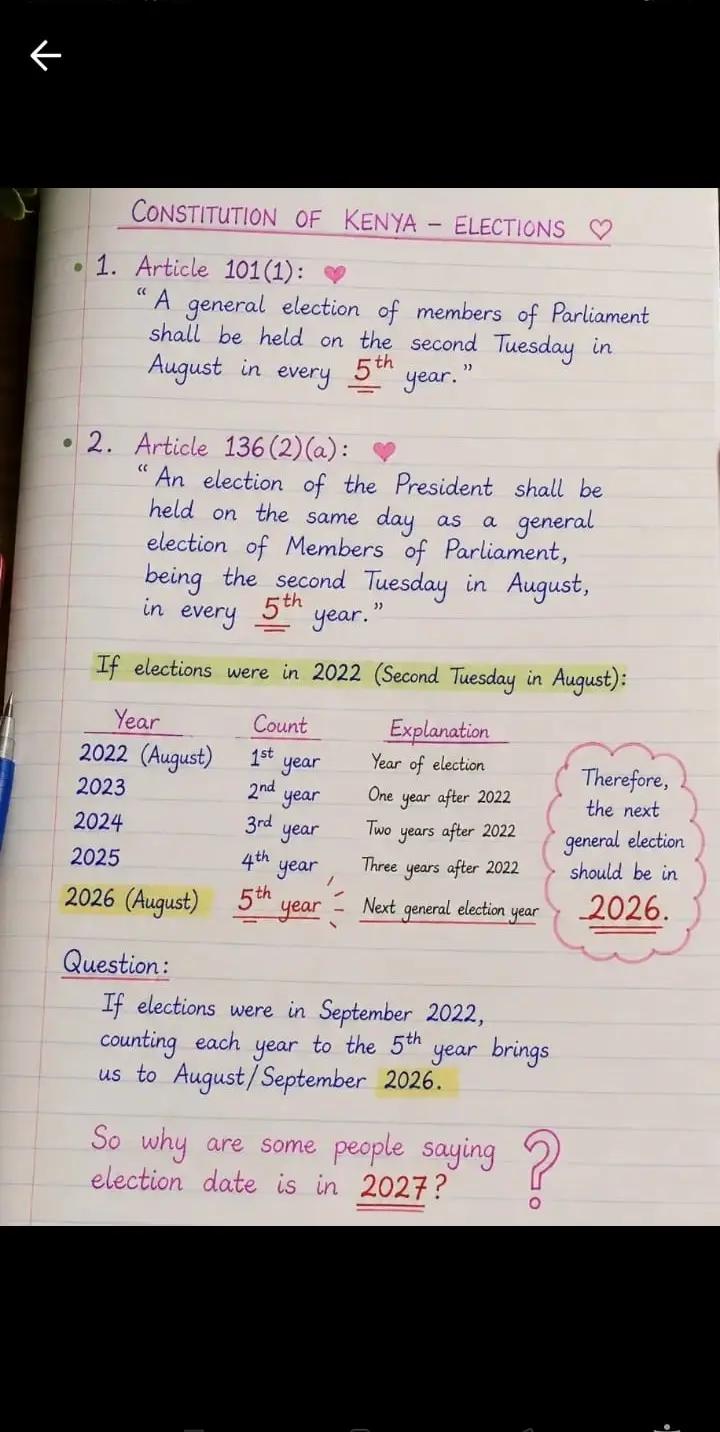 CONSTITUTION OF KENYA – ELECTIONS
1. Article 101(1):
“ A general election of members of Parliament
shall be held on the second Tuesday in
August in every 5th year.”
2. Article 136(2)(a):
“ An election of the President shall be
held on the same day as a general
election of Members of Parliament,
being the second Tuesday in August,
in every 5th year.”
If elections were in 2022 (Second Tuesday in August):
Year Count Explanation
2022 (August) 1st year Year of election
2023 2nd year One year after 2022
2024 3rd year Two years after 2022
2025 4th year Three years after 2022
2026 (August) 5th year – Next general election year
Therefore,
the next
general election
should be in
2026.
Question:
If elections were in September 2022,
counting each year to the 5th year brings
us to August/September 2026.
So why are some people saying
election date is in 2027?